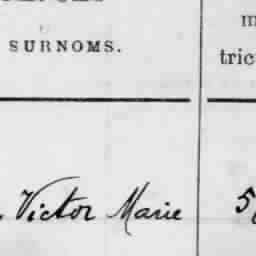 SURNOMS.
tric
Victor Marie